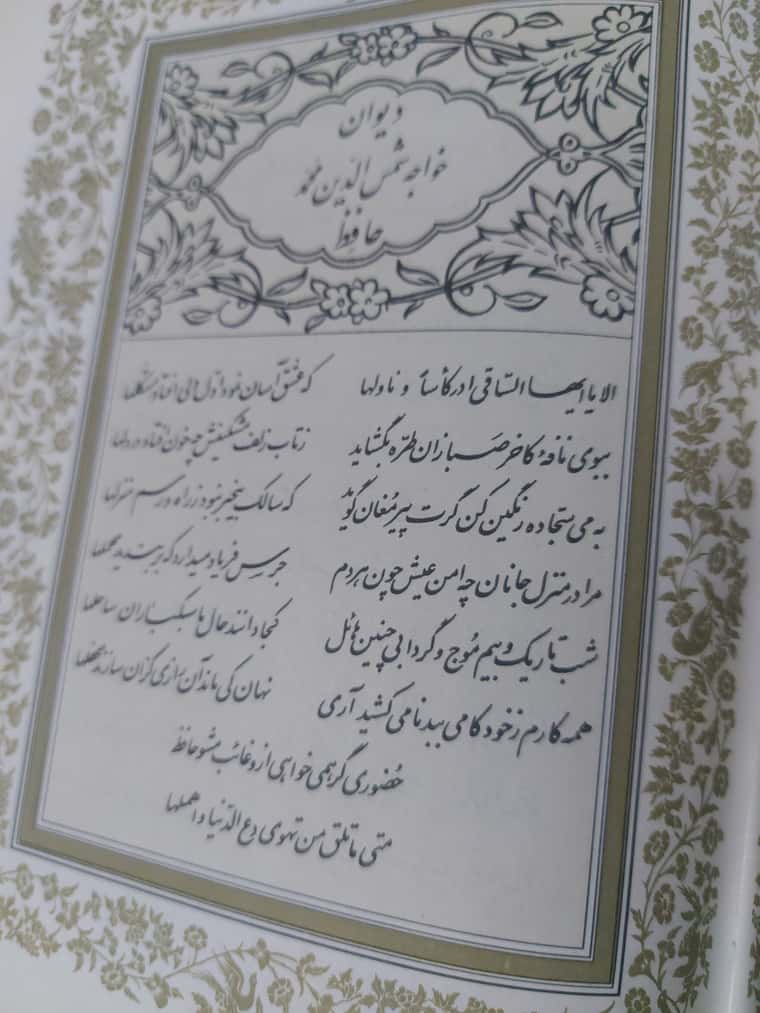 دیوان
خواجه شمس الدین محمد
حافظ
الا یا ایها السّاقی ادر کأساً و ناولها که عشق آسان نمود اول ولی افتاد مشکلها
ببوی نافهٔ کاخر صبا زان طرّه بگشاید زتاب زلف مشکینش چه خون افتاد در دلها
به می سجاده رنگین کن گرت پیر مُغان گوید که سالک بیخبر نبود ز راه و رسم منزلها
مرا در منزل جانان چه امن عیش چون هر دم جرس فریاد میدارد که بر بندید محملها
شب تاریک و بیم مُوج و گردابی چنین هائل کجا دانند حال ما سبکباران ساحلها
همه کارم ز خود کامی ببدنامی کشید آری نهان کی ماند آن رازی کزان سازند محفلها
حُضوری گر همی خواهی ازو غائب مشو حافظ
متی ما تلق من تهوی دع الدّنیا و اهملها